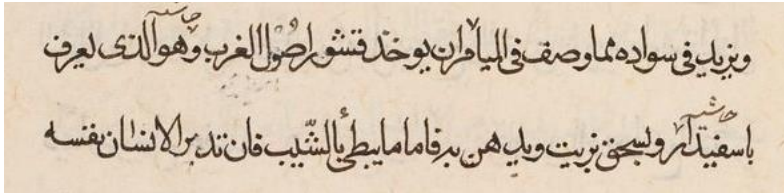 ويزيد في سواده مما وصف في الميامر ان يوخذ قشور اصول الغرب وهو الذى يعرف
باسفيدار ويسحق بزيت ويدهن به فاما ما يبطى بالشيب فان تدبير الانسان نفسه